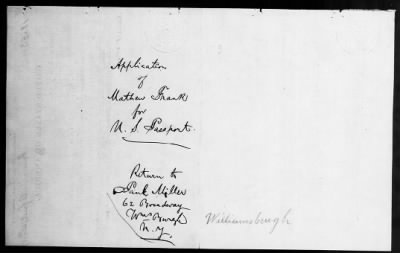 Application
of
Mathew Frank
for
U. S. Passport.
Return to
Paul Miller
62 Broadway
Wms Burgh
N. Y.
Williamsburgh